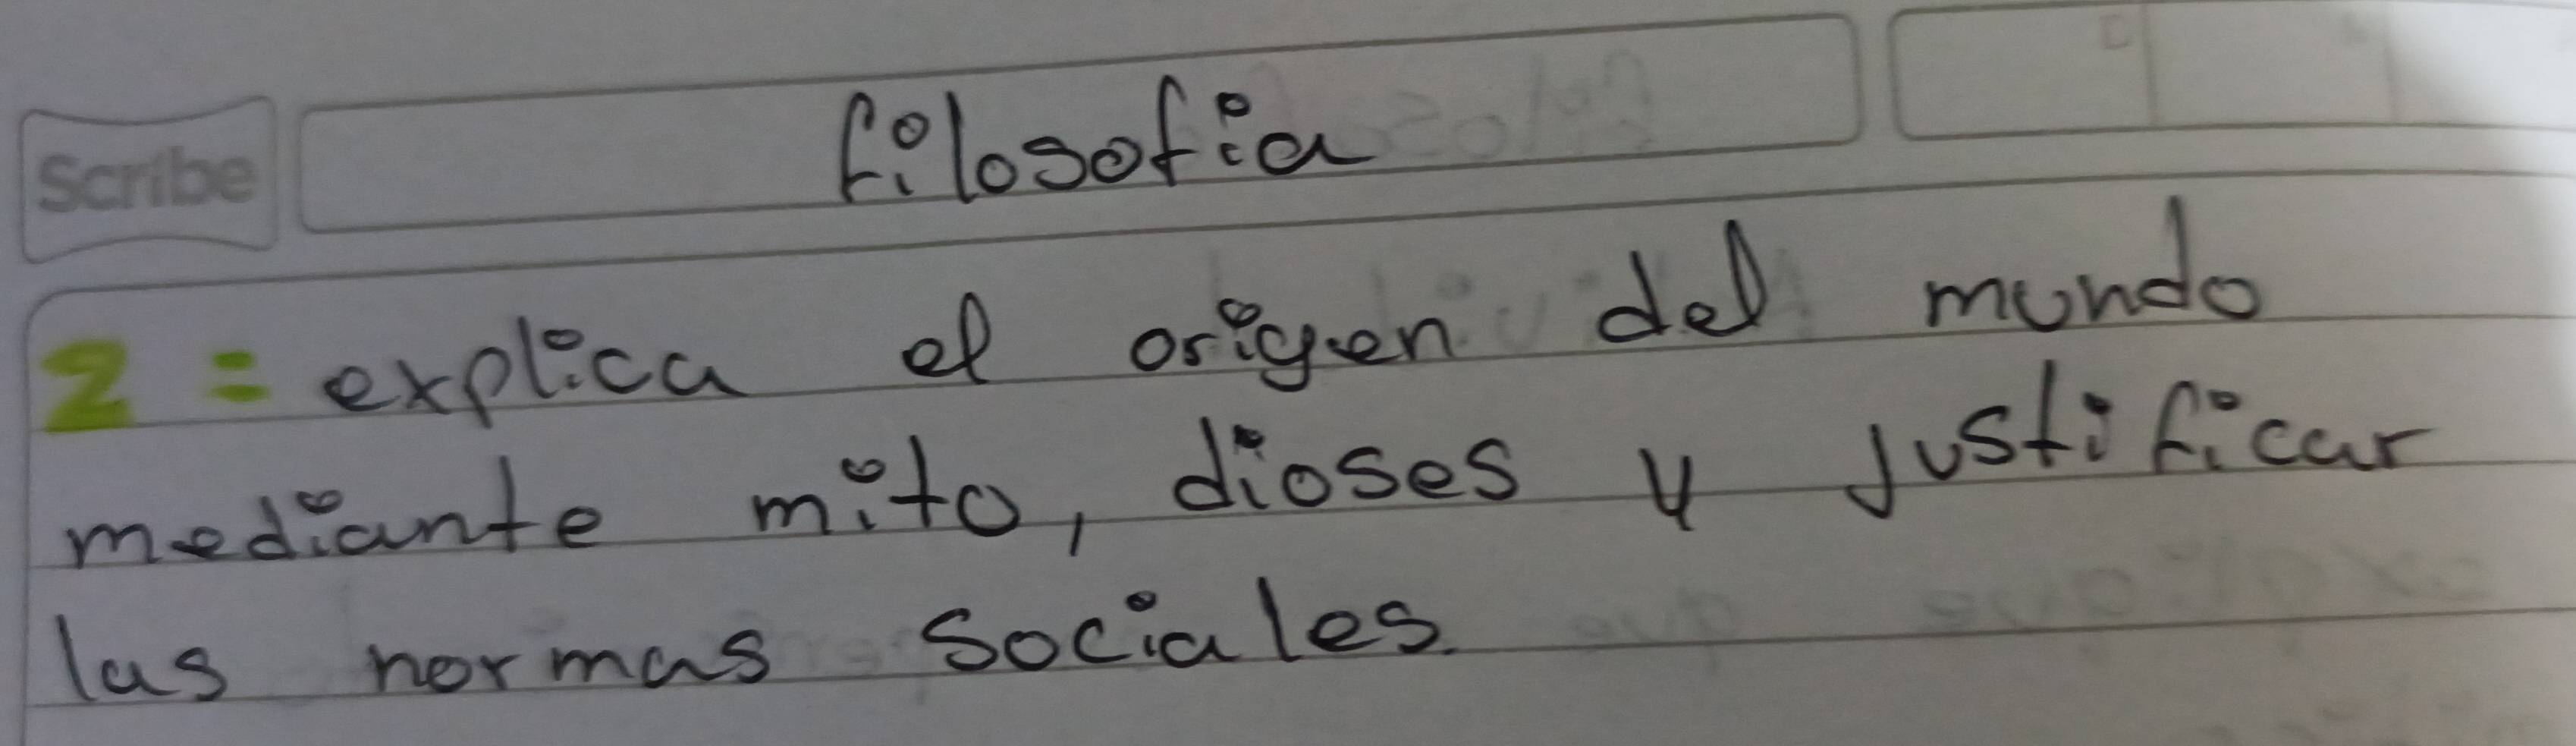 Scribe
filosofia
2 = explica el origen del mundo
mediante mito, dioses y justificar
las normas sociales.